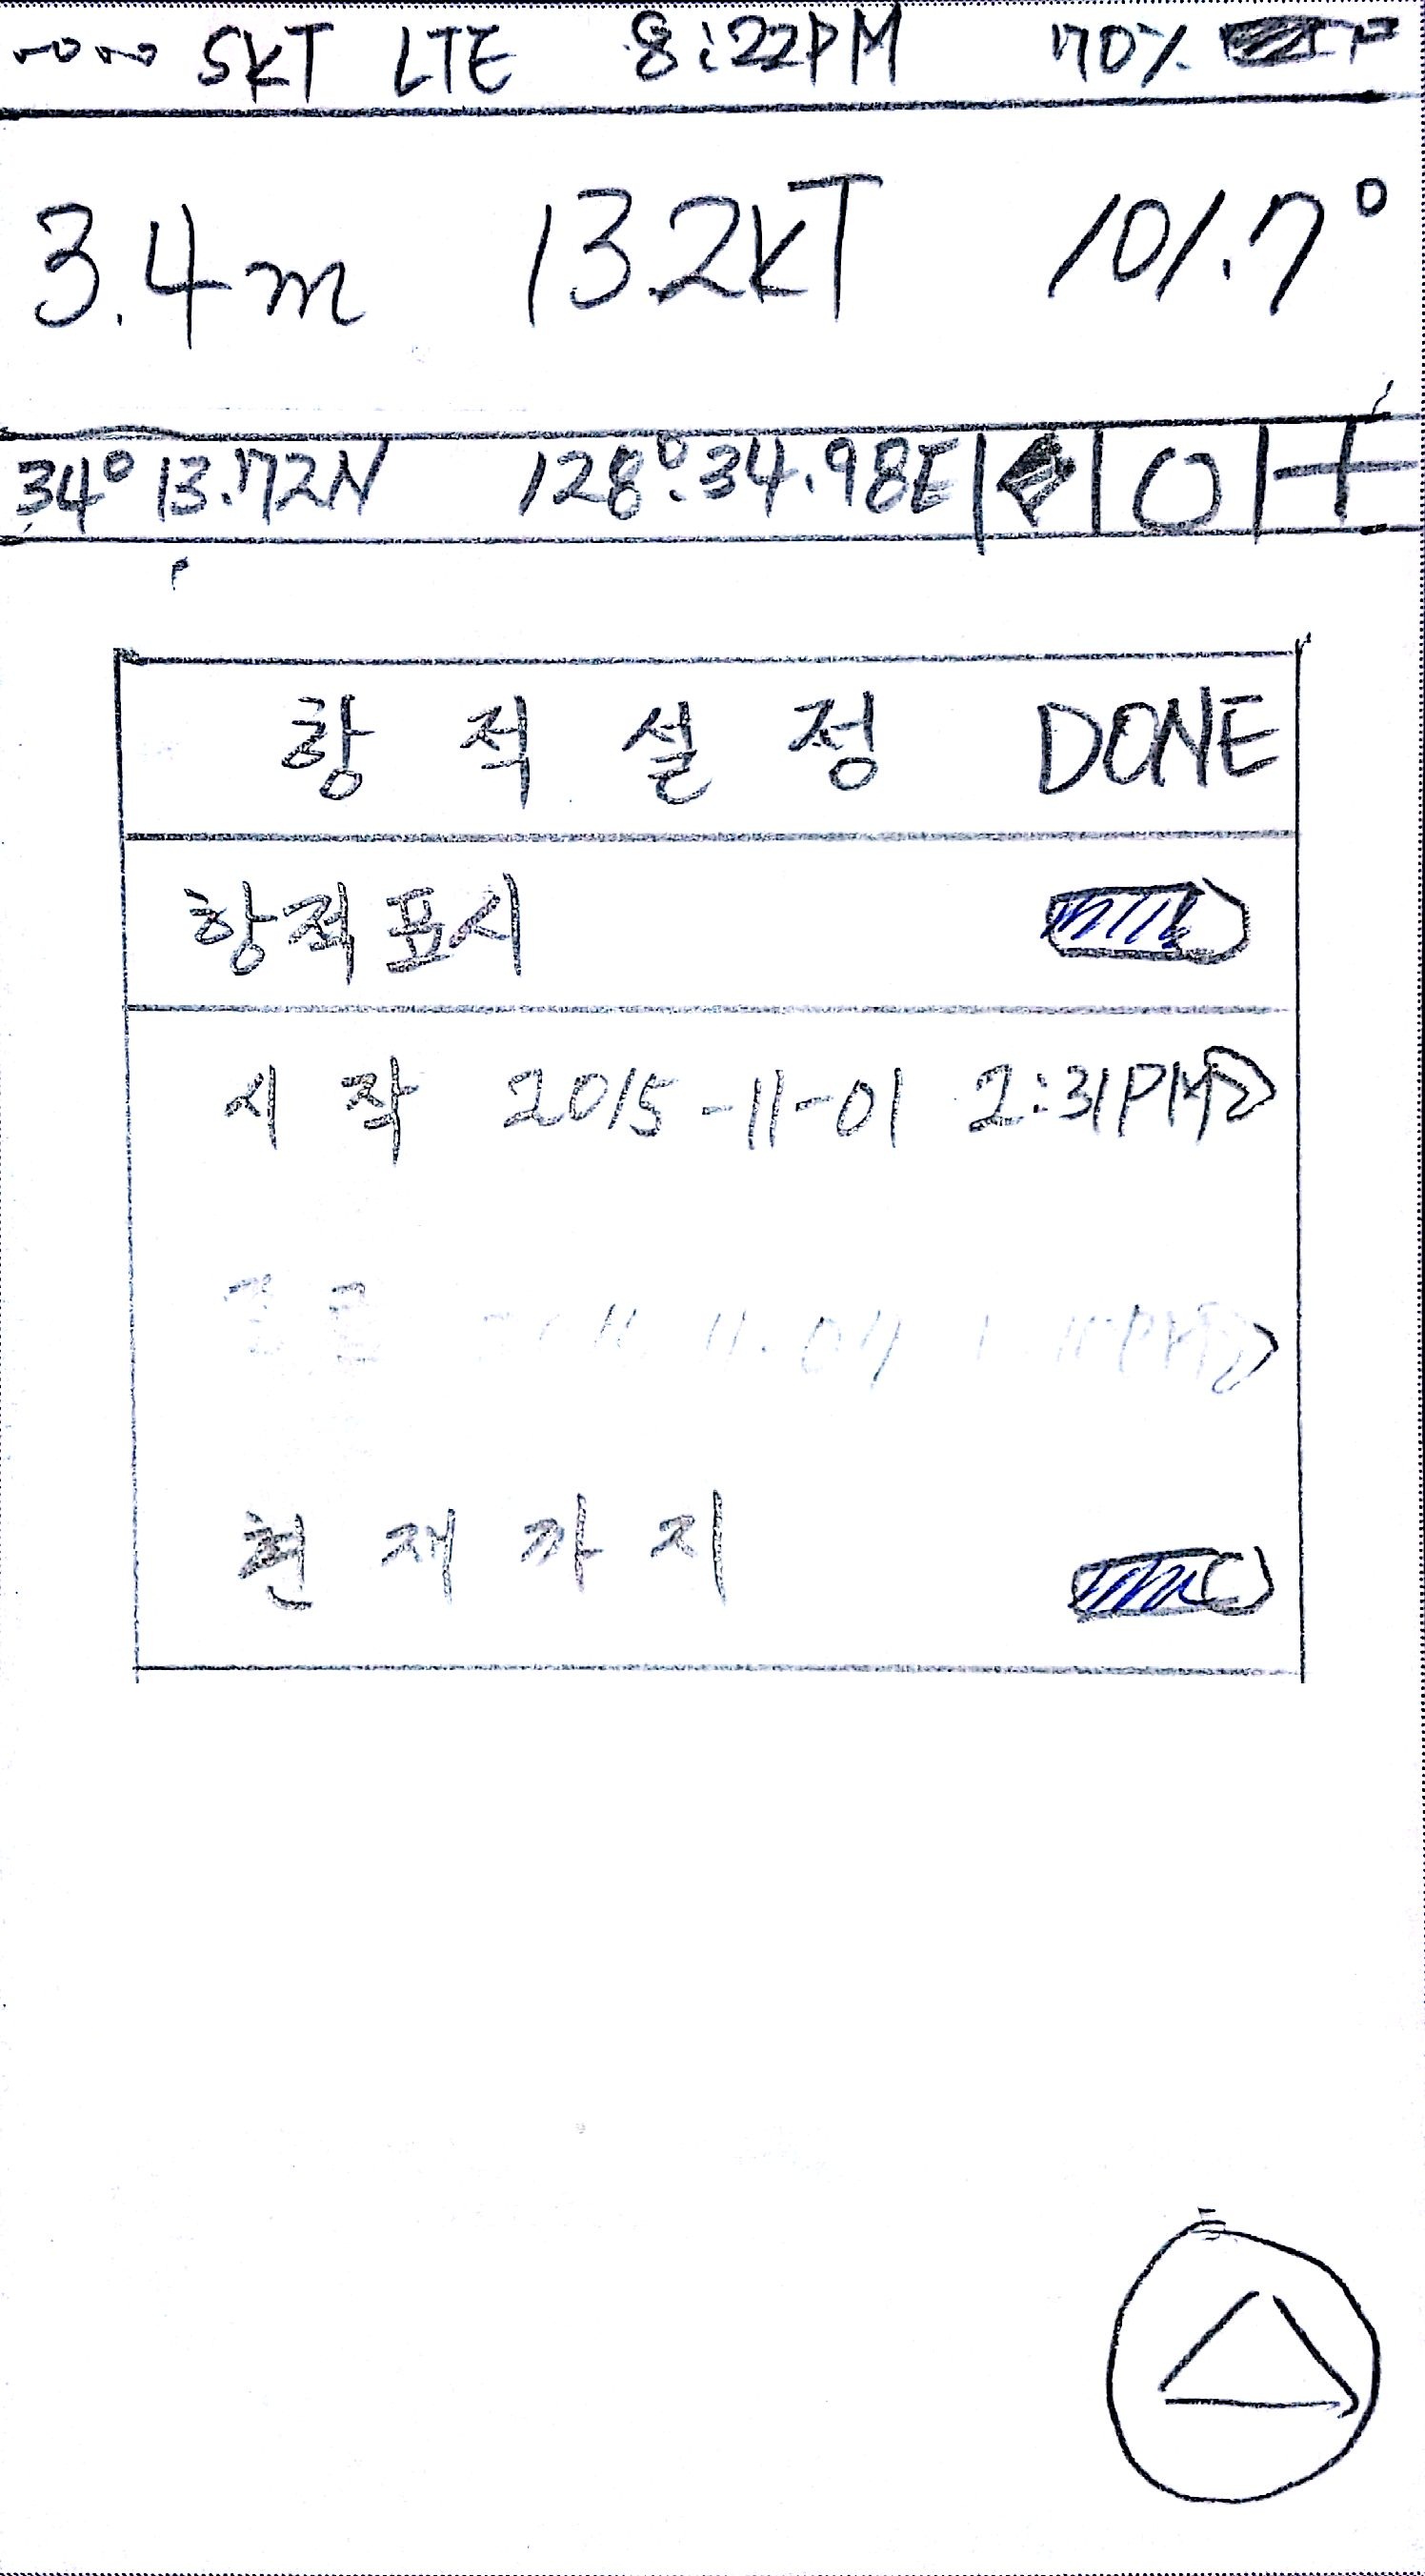 SKT LTE 8:22PM 70%
3.4m 13.2kT 101.7°
34° 13.72N 128° 34.98E
항적설정 DONE
항적표시
시작 2015-11-01 2:31PM
현재까지